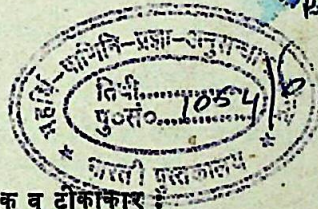 महर्षि-पाणिनि-प्रज्ञा-अनुसन्धान
तिथी..............
पु०सं०...1054/6
* भारती पुस्तकालय *
क व टीकाकार :